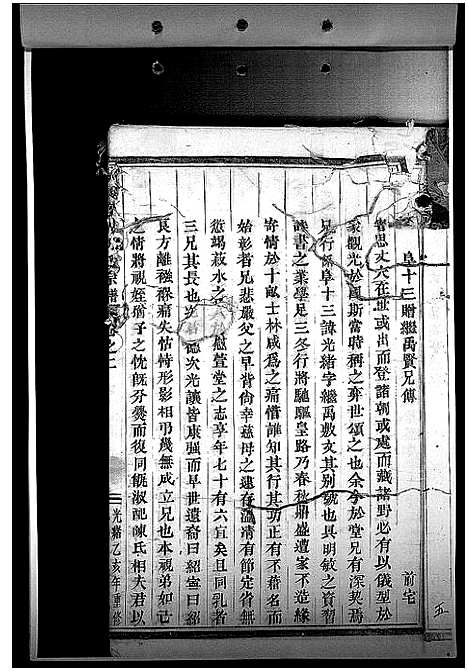 阜十三贈繼禹賢兄傳
前宅
嘗思丈夫在世或出而登諸朝或處而藏諸野必有以儀型於
家觀光於國斯當時稱之弈世頌之也余今於堂兄有深契焉
兄行係阜十三諱光緒字繼禹敷文其別號也具明敏之資習
詩書之業學足三冬行將馳驅皇路乃春秋鼎盛遭家不造緣
寄情於十畝士林咸爲之痛惜誰知其行其功正有不藉名而
始彰者兄悲嚴父之早背倘幸慈母之尚存溫凊有節定省無
愆竭菽水之以慰萱堂之志享年七十有六宜矣且同乳者
三兄其長也次德次光謨皆康强而早世遺裔曰紹宣曰紹
良方離襁褓痛失怙恃形影相弔幾無成立兄也本視弟如己
之情將視姪猶子之忱旣分爨而復同餼淑配陳氏相夫君以
宗譜 卷之二
光緒乙亥年重修
五